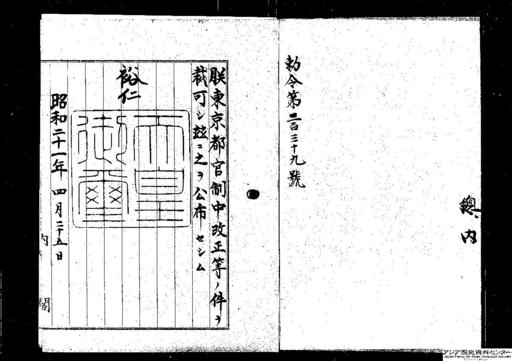 總内
勅令第二百三十九號
朕東京都官制中改正等ノ件ヲ
裁可シ玆ニ之ヲ公布セシム
裕仁
天皇御璽
昭和二十一年四月二十五日
内閣
アジア歴史資料センター